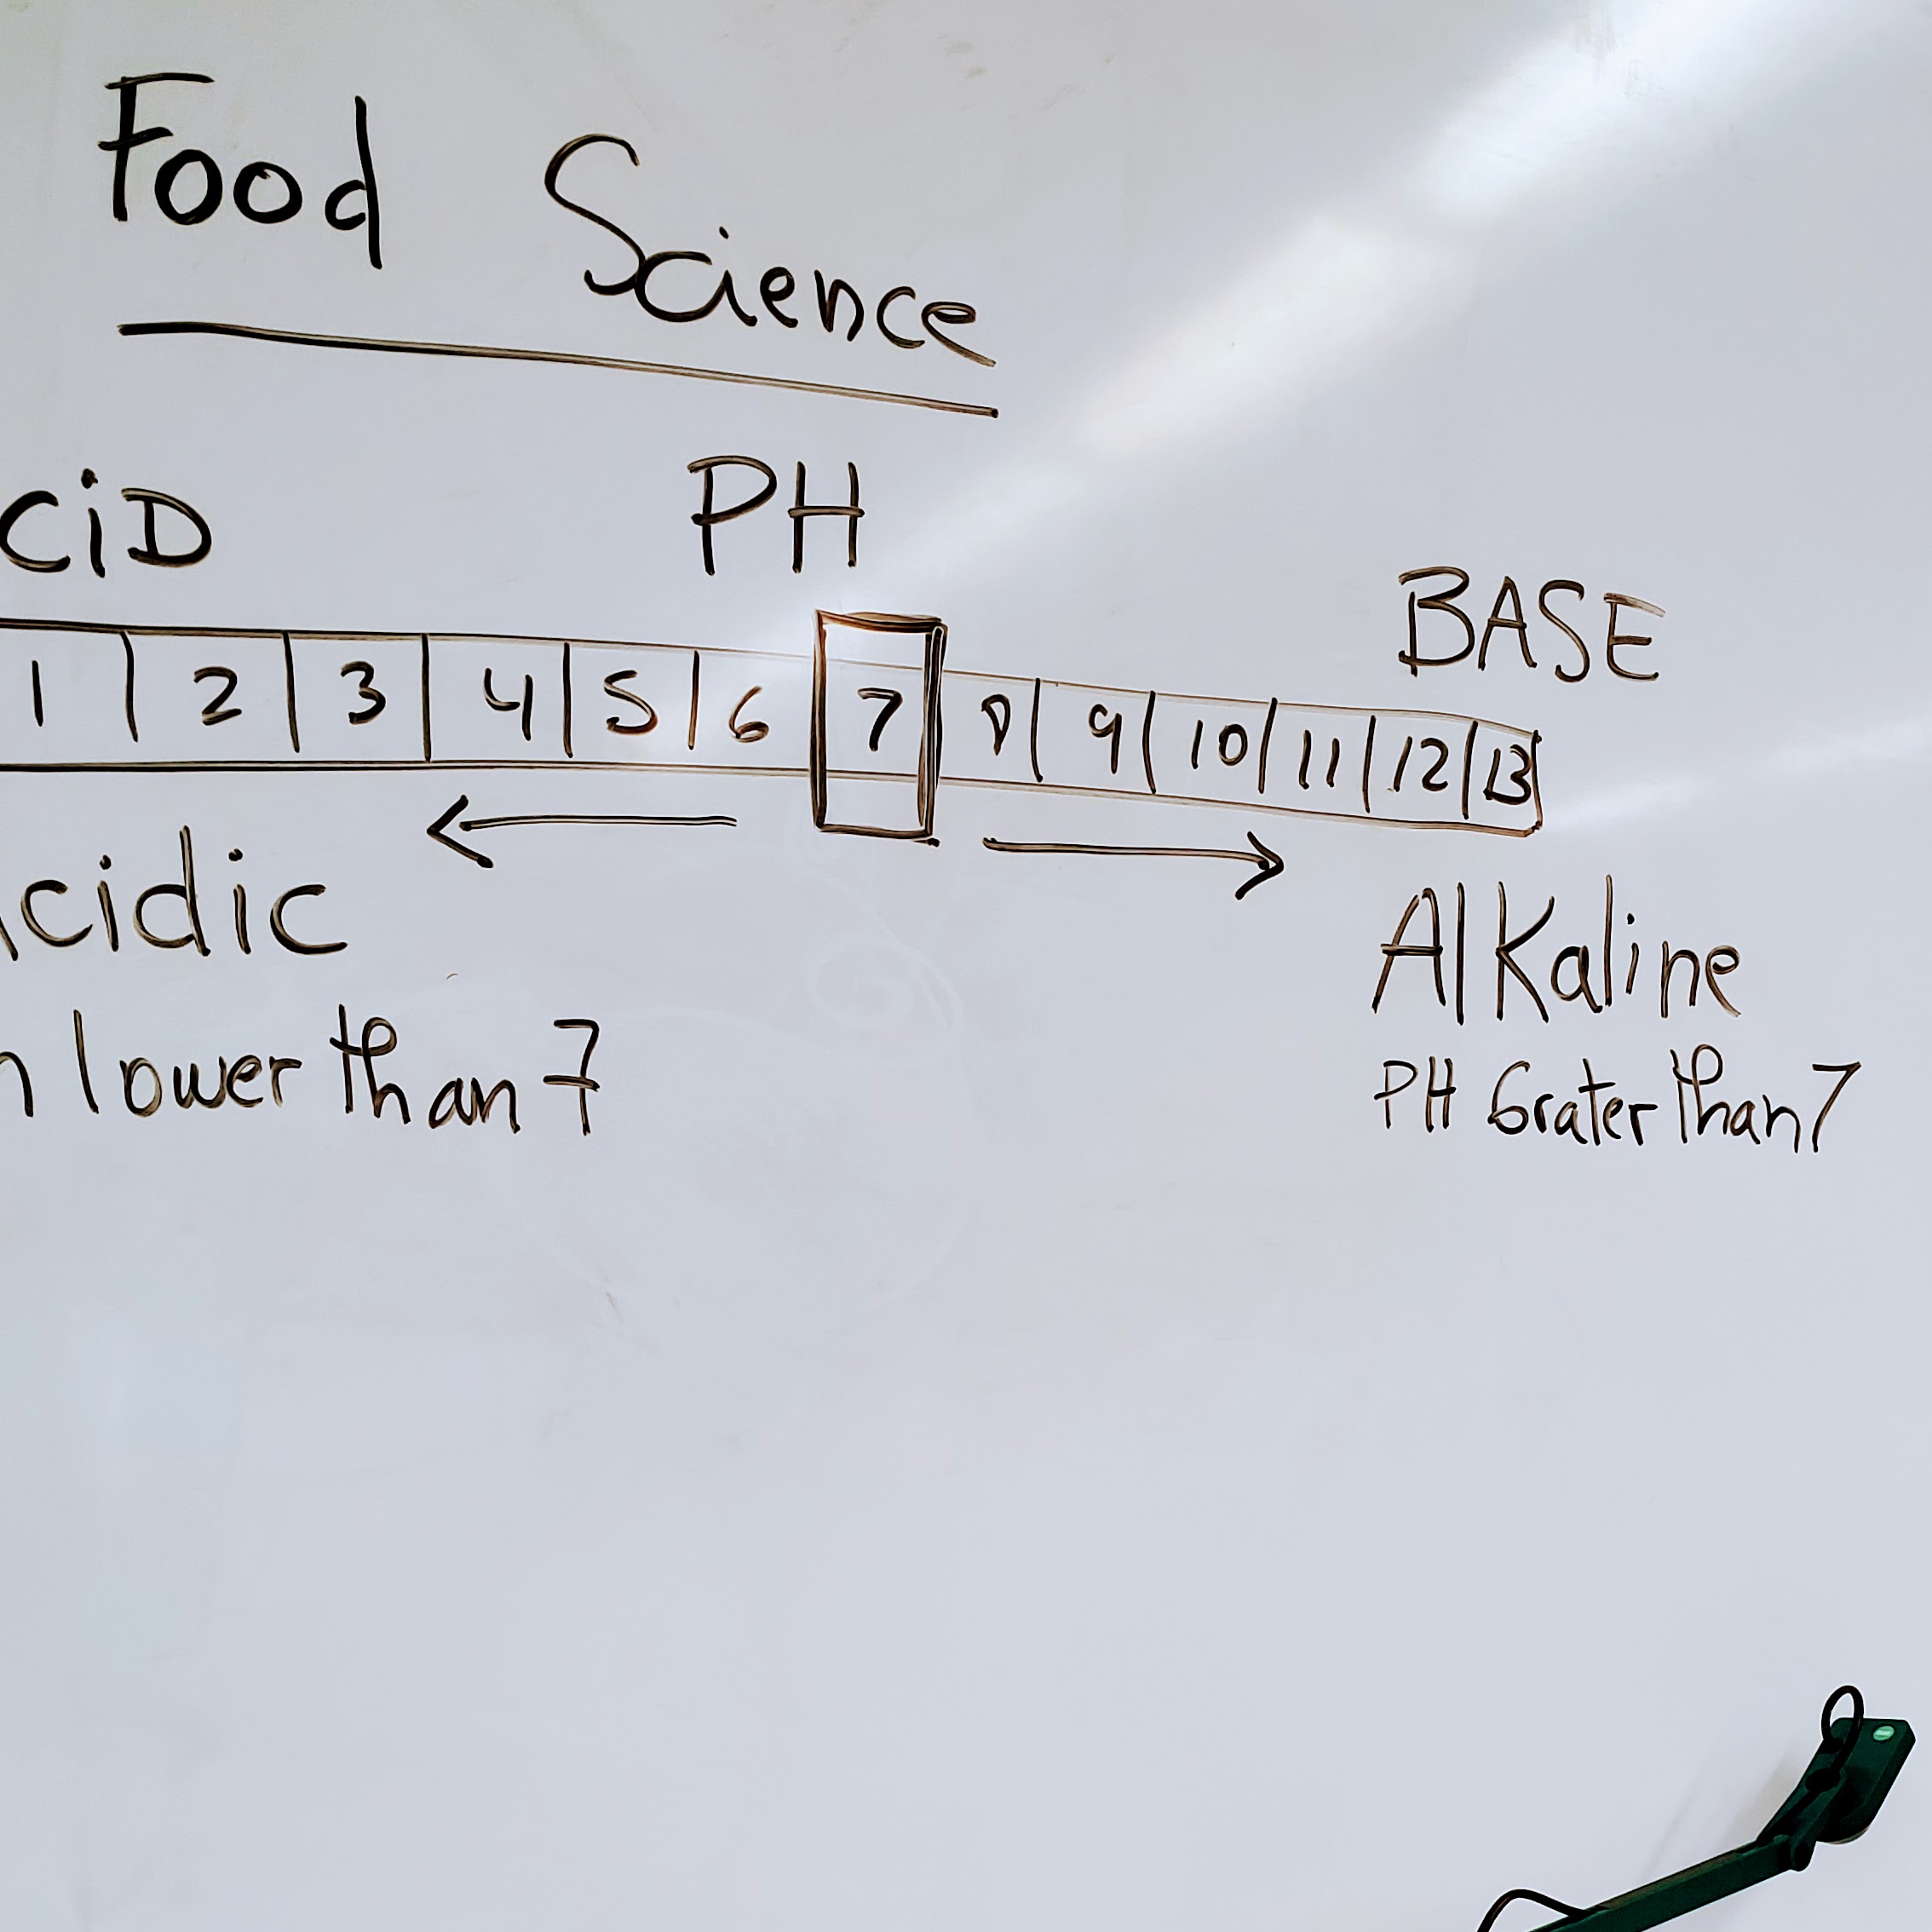 Food Science
CiD PH BASE
1 2 3 4 5 6 7 8 9 10 11 12 13
cidic Alkaline
lower than 7 PH Grater than 7